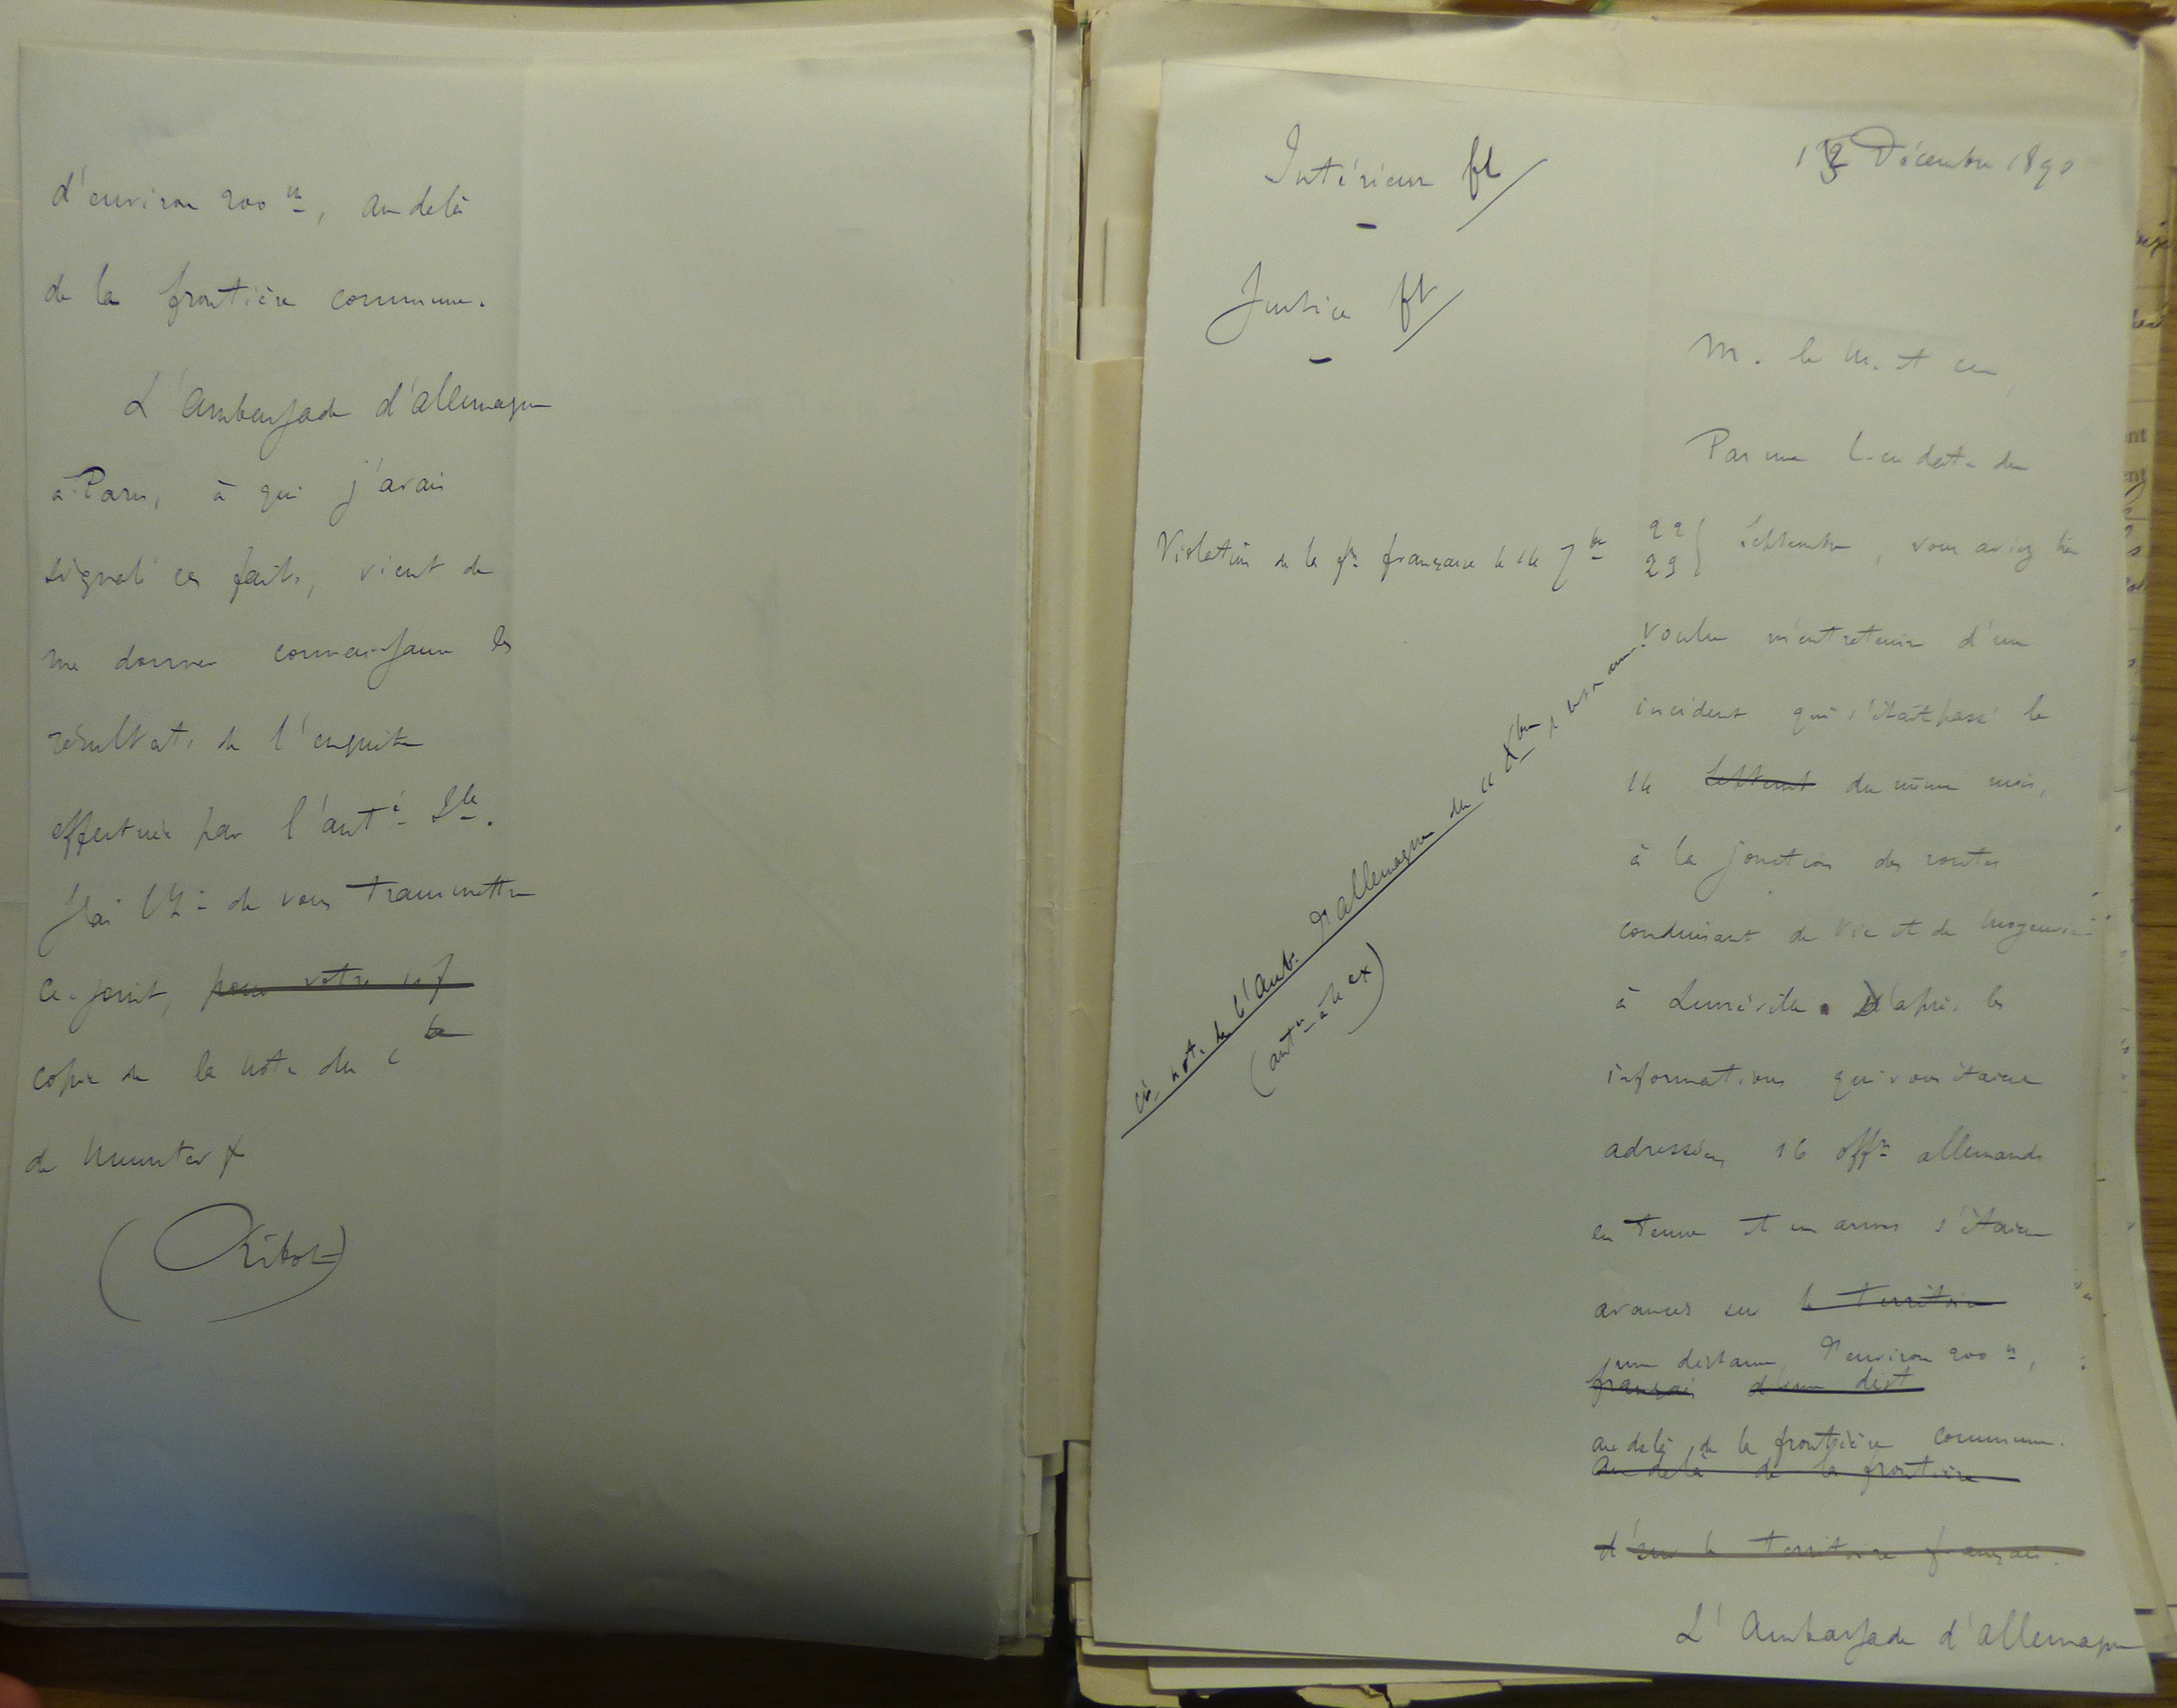 d'environ 200 m, au delà
de la frontière commune.
L'Ambassade d'Allemagne
à Paris, à qui j'avais
signalé ces faits, vient de
me donner connaissance les
résultats de l'enquête
effectuée par l'auté Ile.
J'ai l'h- de vous transmettre
ci-joint, pour votre inf
copie de la note du Cte
de Munster
(Ribot)
Intérieur ft
13 Décembre 1890
Justice ft
M. le M. et
Par une l. en date du
Violation de la fre française le 14 7bre
22
29 } Septembre, vous aviez bien
voulu m'entretenir d'un
incident qui s'était passé le
14 Septemb du même mois,
à la jonction des routes
conduisant de Vic et de
à Lunéville. D'après les
informations qui vous étaient
adressées 16 offrs allemands
en tenue et en armes s'étaient
avancés sur le territoire
une distance d'environ 200 m,
français d'une dist
au delà de la frontière commune.
au delà de la frontière
d' sur le territoire français.
L'Ambassade d'Allemagne
note de l'Amb. d'Allemagne du 11 Xbre